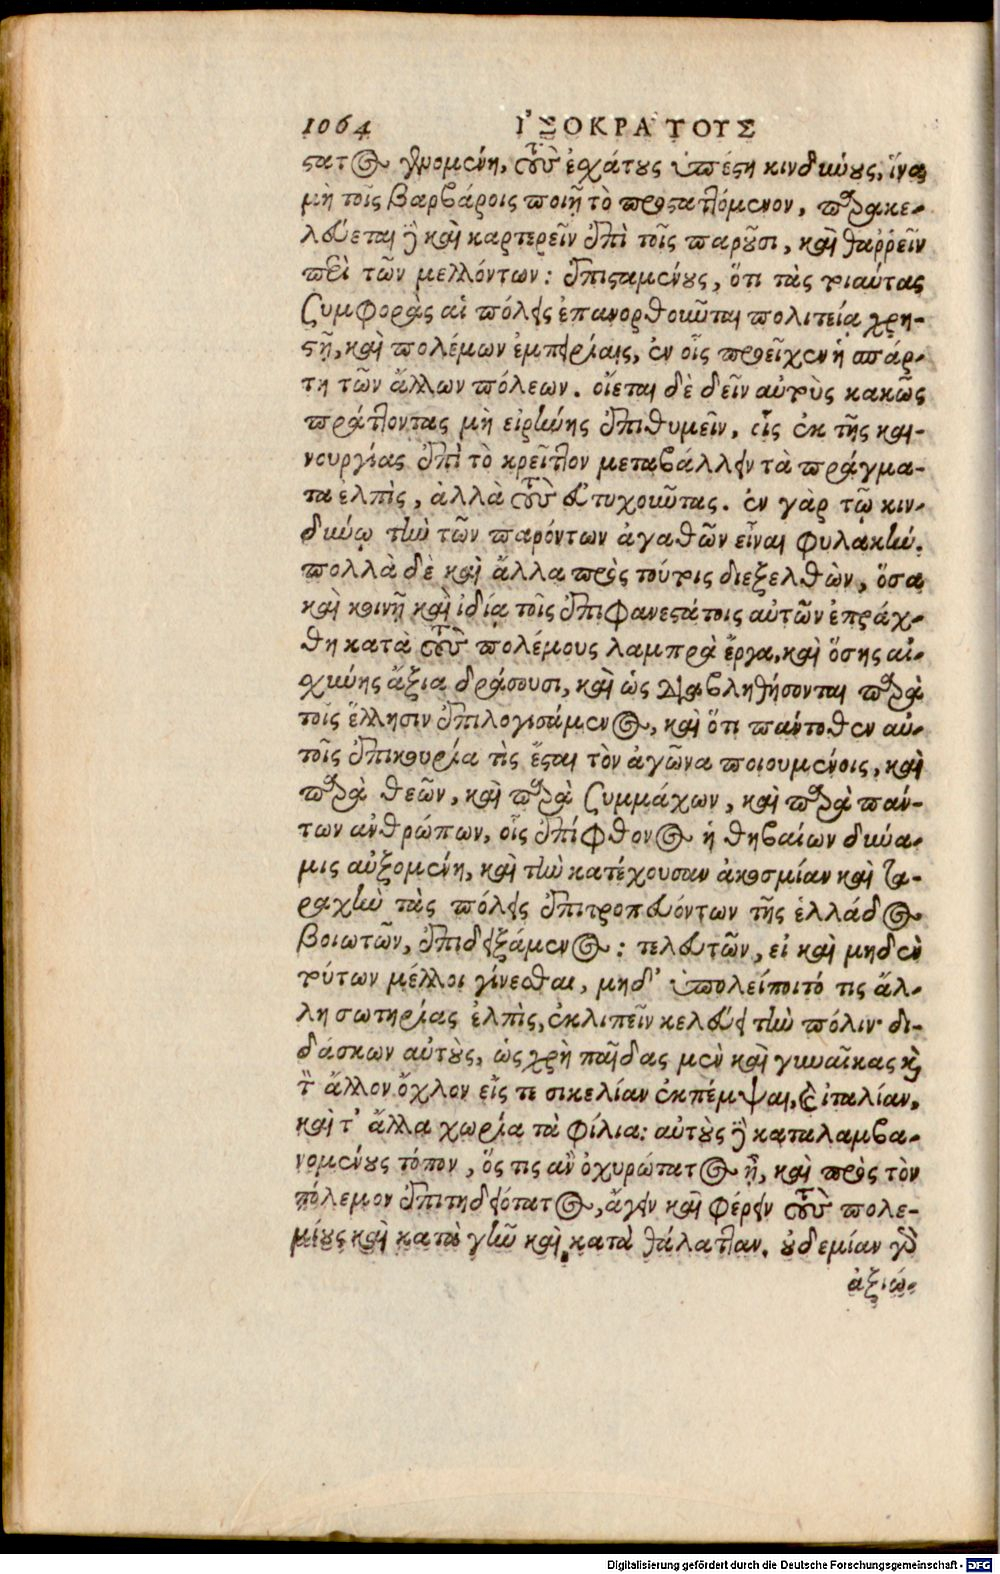 1064 ἸΣΟΚΡΑΤΟΥΣ
στατος γενομένη, τοὺς ἐσχάτους ὑπέστη κινδύνους, ἵνα
μὴ τοῖς βαρβάροις ποιῇ τὸ προσταττόμενον, παρακε-
λεύεται δὲ καὶ καρτερεῖν ἐπὶ τοῖς παροῦσι, καὶ θαῤῥεῖν
περὶ τῶν μελλόντων: ἐπισταμένους, ὅτι τὰς τοιαύτας
συμφορὰς αἱ πόλεις ἐπανορθοῦνται πολιτείᾳ χρη-
στῇ, καὶ πολέμων ἐμπειρίαις, ἐν οἷς προεῖχεν ἡ σπάρ-
τη τῶν ἄλλων πόλεων. οἴεται δὲ δεῖν αὐτοὺς κακῶς
πράττοντας μὴ εἰρήνης ἐπιθυμεῖν, οἷς ἐκ τῆς και-
νουργίας ἐπὶ τὸ κρεῖττον μεταβάλλειν τὰ πράγμα-
τα ελπὶς, ἀλλὰ τοὺς εὐτυχοῦντας. ἐν γὰρ τῷ κιν-
δύνῳ τὴν τῶν παρόντων ἀγαθῶν εἶναι φυλακήν.
πολλὰ δὲ καὶ ἄλλα πρὸς τούτοις διεξελθὼν, ὅσα
καὶ κοινῇ καὶ ἰδίᾳ τοῖς ἐπιφανεστάτοις αὐτῶν ἐπράχ-
θη κατὰ τοὺς πολέμους λαμπρὰ ἔργα, καὶ ὅσης αἰ-
σχύνης ἄξια δράσουσι, καὶ ὡς διαβληθήσονται παρὰ
τοῖς ἕλλησιν ἐπιλογισάμενος, καὶ ὅτι παντόθεν αὐ-
τοῖς ἐπικουρία τὶς ἔσται τὸν ἀγῶνα ποιουμένοις, καὶ
παρὰ θεῶν, καὶ παρὰ συμμάχων, καὶ παρὰ πάν-
των ἀνθρώπων, οἷς ἐπίφθονος ἡ θηβαίων δύνα-
μις αὐξομένη, καὶ τὴν κατέχουσαν ἀκοσμίαν καὶ τα-
ραχὴν τὰς πόλεις ἐπιτροπευόντων τῆς ἑλλάδος
βοιωτῶν, ἐπιδειξάμενος: τελευτῶν, εἰ καὶ μηδὲν
τούτων μέλλοι γίνεσθαι, μηδ' ὑπολείποιτό τις ἄλ-
λη σωτηρίας ἐλπὶς, ἐκλιπεῖν κελεύει τὴν πόλιν· δι-
δάσκων αὐτοὺς, ὡς χρὴ παῖδας μὲν καὶ γυναῖκας καὶ
τὸν ἄλλον ὄχλον εἴς τε σικελίαν ἐκπέμψαι, καὶ ἰταλίαν,
καὶ τ' ἄλλα χωρία τὰ φίλια: αὐτοὺς δὲ καταλαμβα-
νομένους τόπον, ὅς τις ἂν ὀχυρώτατος ᾖ, καὶ πρὸς τὸν
πόλεμον ἐπιτηδειότατος, ἄγειν καὶ φέρειν τοὺς πολε-
μίους καὶ κατὰ γῆν καὶ κατὰ θάλατταν. οὐδεμίαν γὰρ
ἀξιώ-
Digitalisierung gefördert durch die Deutsche Forschungsgemeinschaft - DFG